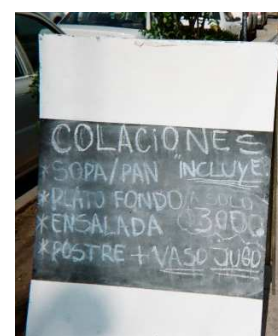 COLACIONES
*SOPA/PAN "INCLUYE
*PLATO FONDO A SOLO
*ENSALADA 3000
*POSTRE + VASO JUGO